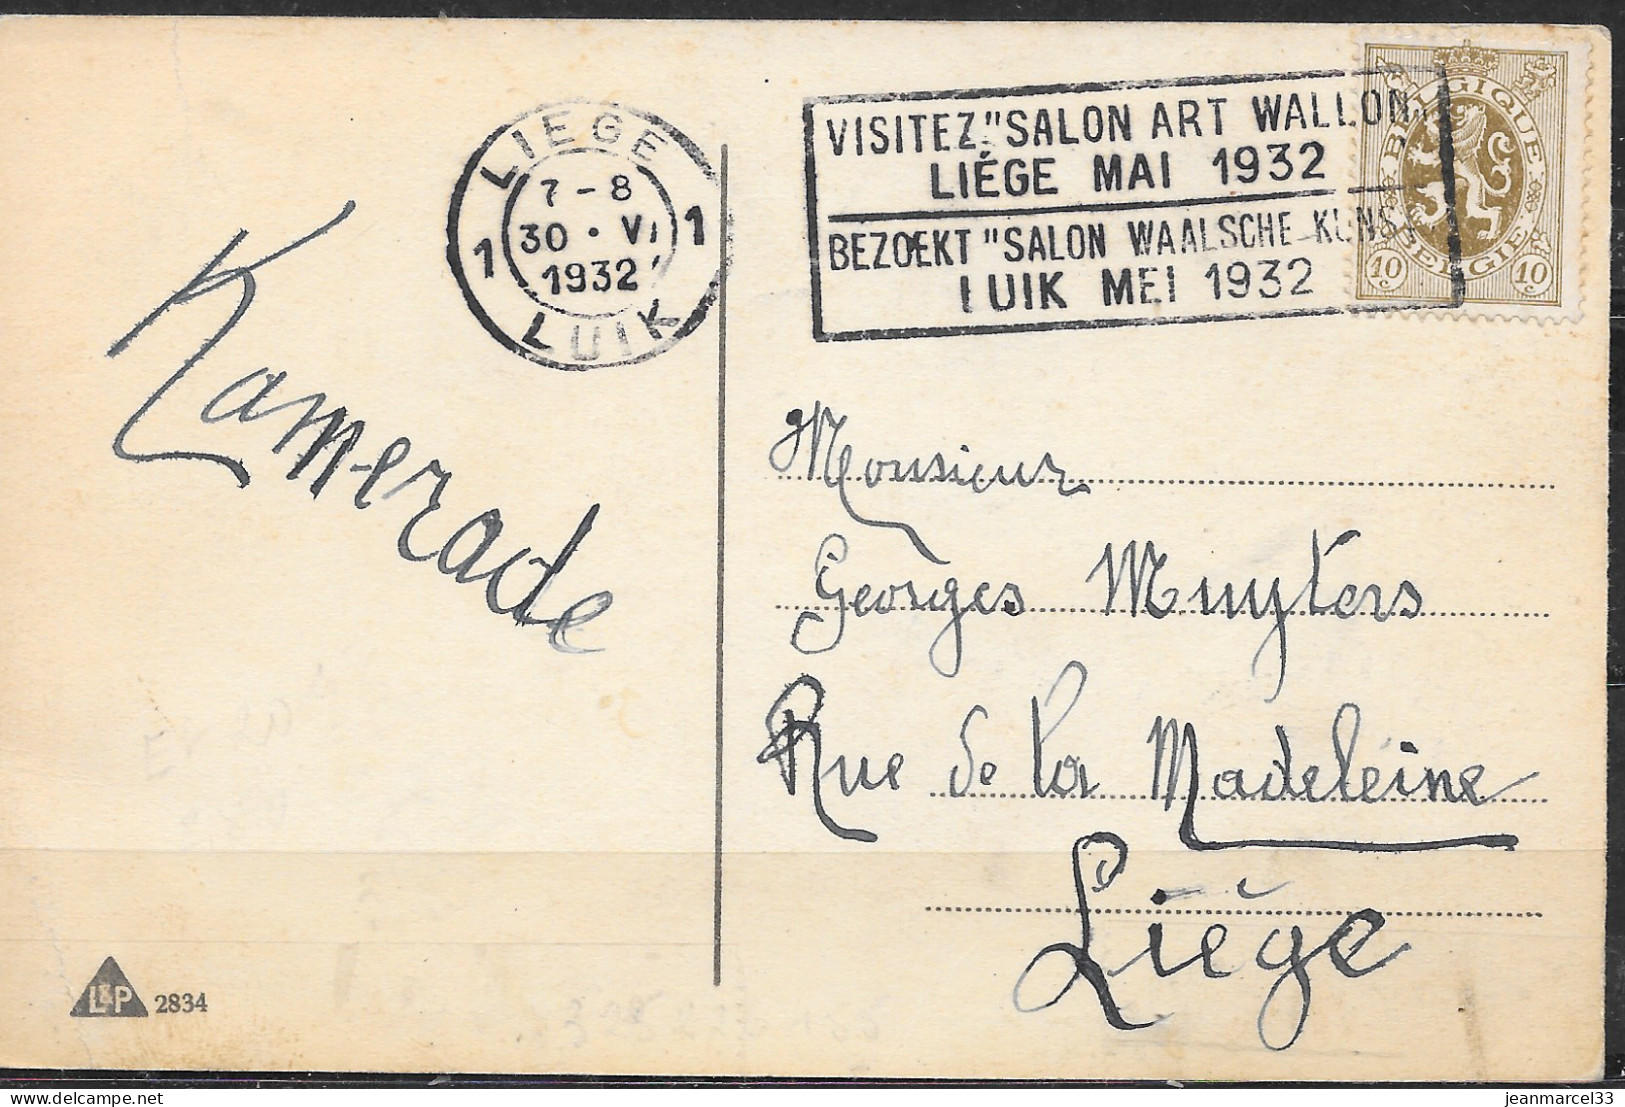 LIEGE
7-8
30 • VI
1932
1 1
LUIK
VISITEZ "SALON ART WALLON"
LIÉGE MAI 1932
BEZOEKT "SALON WAALSCHE KUNS
LUIK MEI 1932
BELGIQUE
BELGIË
10 c 10 c
Kamerade
Monsieur
Georges Muyters
Rue de la Madeleine
Liège
L&P 2834
jeanmarcel33